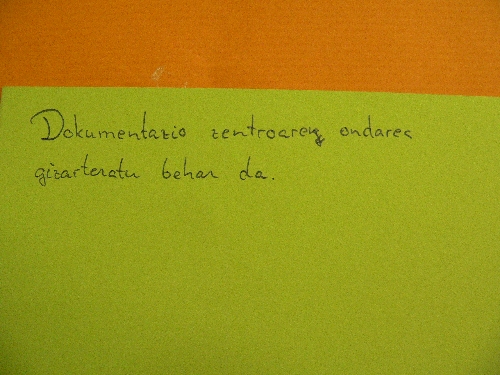 Dokumentazio zentroaren ondarea
gizarteratu behar da.